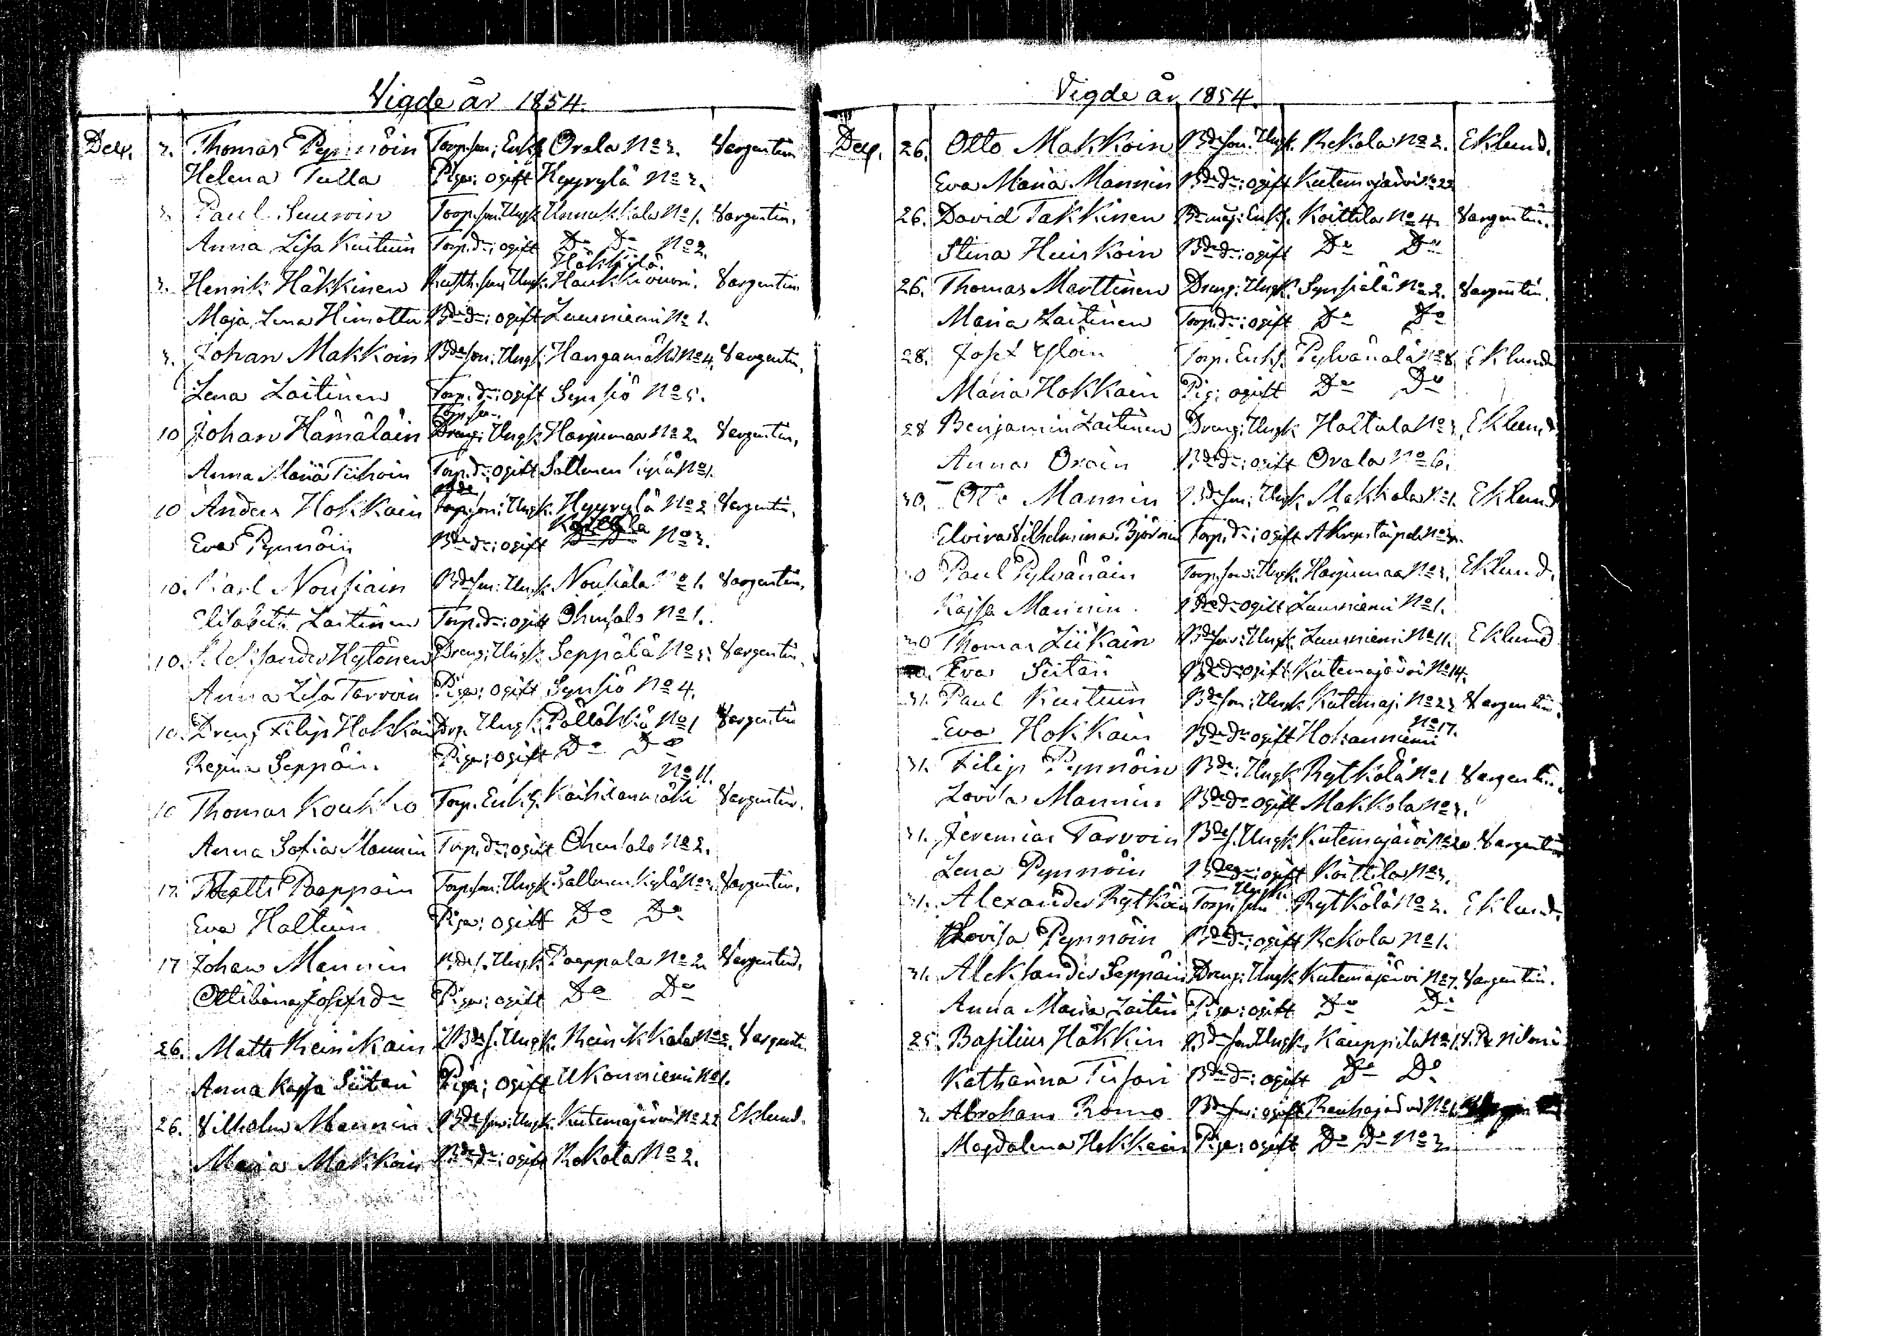 Vigde år 1854.
Dec. 3. Thomas Pynnöin Torp. son; Enkl. Orala No 3. Vargentin
Helena Tulla Piga; ogift Hyyrylä No 3.
3. Paul Suuroin Torp. son. Ungk. Unnukkala No 1. Vargentin.
Anna Lisa Kuituin Torp. dr; ogift Do Do No 2.
Häkkilä
3. Henrik Häkkinen son, Ungk. Vargentin
Maja Lena Himottu Bde dr; ogift Launiemi No 1.
3. Johan Makkoin Bde son; Ungk. Hangamäki No 4. Vargentin.
Lena Laitinen Torp. dr; ogift Synsiö No 5.
Torp. son.
10 Johan Hämäläin Dreng; Ungk. Harjumaa No 2. Vargentin.
Anna Maria Tiihoin Torp. dr; ogift No 1.
10 Anders Hokkain Torp. son; Ungk. Hyyrylä No 2 Vargentin.
Eva Pynnöin Bde dr; ogift No 3.
10. Karl Nousiain Bde son. Ungk. Nousiala No 1. Vargentin.
Elisabeth Laitinen Torp. dr; ogift Ohensalo No 1.
10. Aleksander Hytönen Dreng; Ungk. Seppälä No 3. Vargentin.
Anna Lisa Tarvoin Piga; ogift Synsiö No 4.
10. Dreng Filip Hokkain Drg. Ungk. Pölläkkä No 1 Vargentin
Regina Seppäin. Piga; ogift Do Do
No 11.
10 Thomas Koukko Torp. Enkl. Vargentin.
Anna Sofia Mannin Torp. dr; ogift Ohensalo No 2.
17. Matts Paappain Torp. son; Ungk. Vargentin.
Eva Haltuin Piga; ogift Do Do
17 Johan Mannin Bde s. Ungk. Paappala No 2. Vargentin.
Ottiliana Josefs dr Piga; ogift Do Do
26. Matts Reinikain Bde s. Ungk. Reinikkala No 2. Vargentin.
Anna Kajsa Siitari Piga; ogift Ukonniemi No 1.
26. Vilhelm Mannin Bde son; Ungk. Kutemajärvi No 22 Eklund.
Maria Makkoin Bde dr; ogift Rekola No 2.
Vigde år 1854.
Dec. 26. Otto Makkoin Bde son. Ungk. Rekola No 2. Eklund.
Eva Maria Mannin Bde dr; ogift Kutemajärvi No 22
26. David Takkinen Enkl. Koittila No 4. Vargentin.
Stina Huiskoin Bde dr; ogift Do Do
26. Thomas Marttinen Dreng; Ungk. Synsiälä No 2. Vargentin.
Maria Laitinen Torp. dr; ogift Do Do
28. Josef Ylöin Torp. Enkl. Pylvänälä No 8. Eklund
Maria Hokkain Pig; ogift Do Do
28 Benjamin Laitinen Dreng; Ungk Haltula No 3. Eklund
Anna Orain Bde dr; ogift Orala No 6.
30. Otto Mannin Bde son; Ungk. Makkola No 1. Eklund
Elvira Vilhelmina Björnin Torp. dr; ogift
30 Paul Pylvänäin Torp. son. Ungk. Harjumaa No 3. Eklund.
Kajsa Mannin. Bde dr ogift Launiemi No 1.
30 Thomas Liikain Bde son; Ungk. Launiemi No 11. Eklund
Eva Siitari Bde dr ogift Kutemajärvi No 14.
31. Paul Kuituin Bde son; Ungk Kutemaj. No 23 Vargentin.
No 17.
Eva Hokkain Bde dr ogift Hohanniemi
31. Filip Pynnöin Bde; Ungk. Rytkölä No 1 Vargentin.
Lovisa Mannin Bde dr ogift Makkola No 3.
31. Jeremias Tarvoin Bde s. Ungk Kutemajärvi No 20. Vargentin
Lena Pynnöin Bde dr; ogift Koittila No 3.
31. Alexander Rytköin Torp. son Ungk. Rytkölä No 2. Eklund.
Lovisa Pynnöin Bde dr; ogift Rekola No 1.
31. Aleksander Seppäin Dreng; Ungk Kutemajärvi No 7. Vargentin.
Anna Maria Laitin Piga; ogift Do Do
25. Basilius Häkkin Bde son Ungk. Kauppila No 1.
Katharina Tiusain Bde dr; ogift Do Do
3. Abraham Romo Bde son; ogift
Magdalena Hokkain Piga; ogift Do Do No 3.